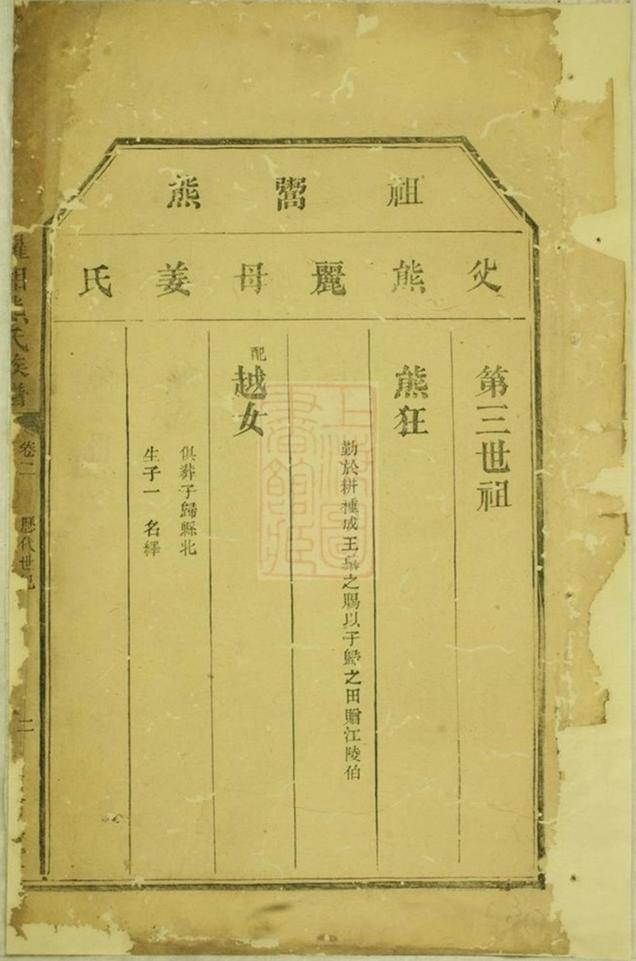 祖鬻熊
父熊麗母姜氏
第三世祖
熊狂
勤於耕種成王之賜以子歸之田贈江陵伯
配
越女
俱葬子歸縣北
生子一 名繹
氏族譜
卷二
歷代世紀
二
上海圖